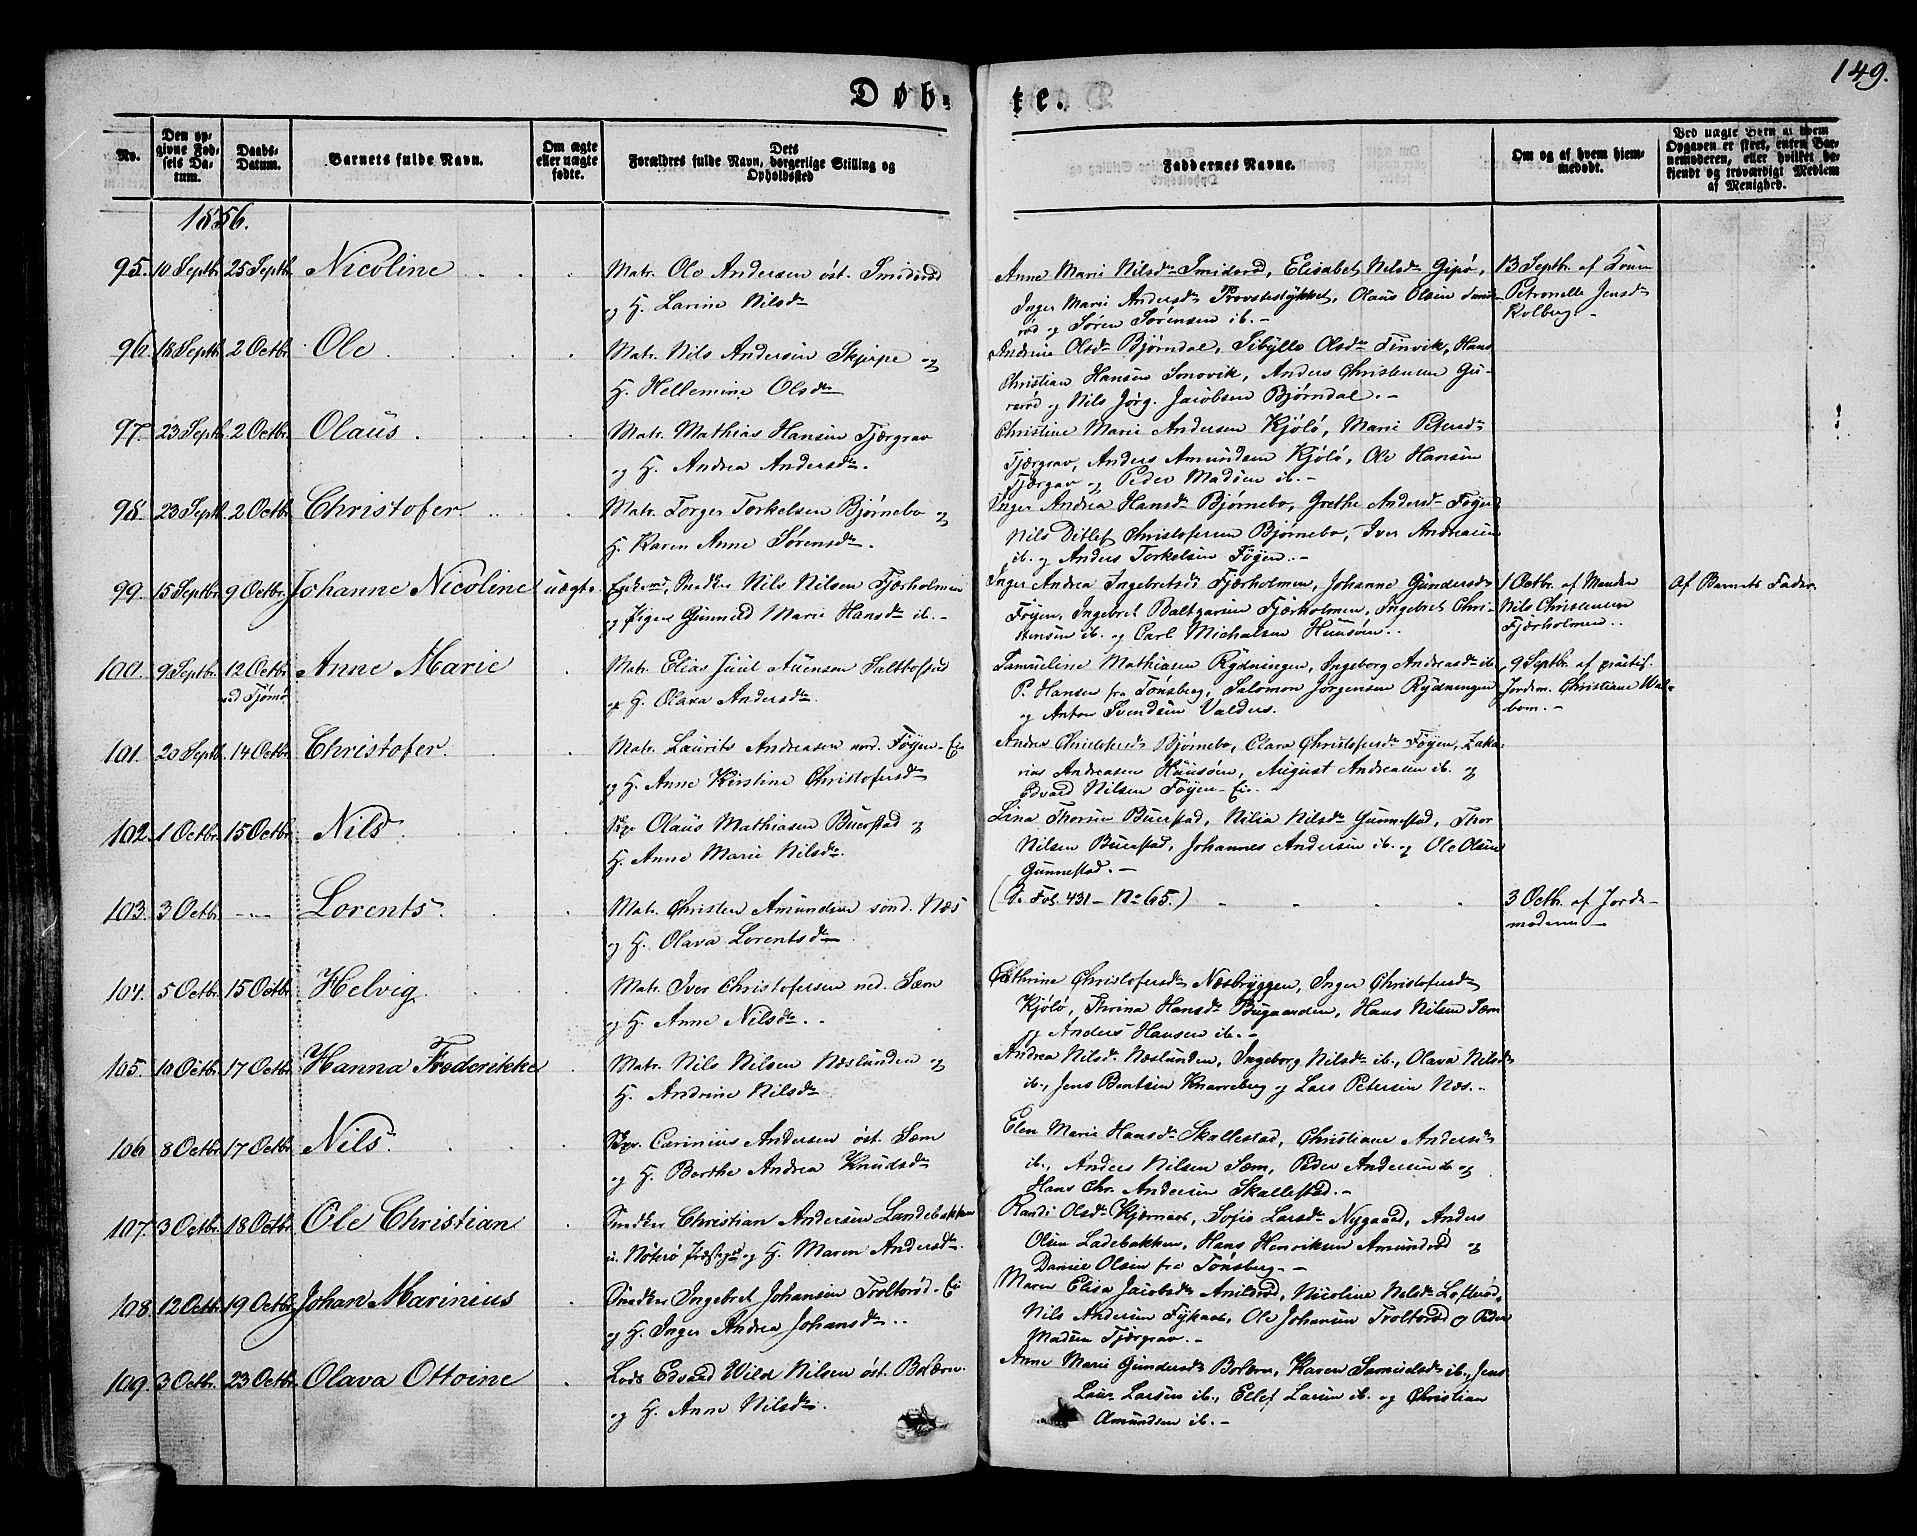 149.
Døb-te.
No.
Den op-
givne Fød-
sels Da-
tum.
Daabs-
Datum.
Barnets fulde Navn.
Om ægte
eller uægte
fødte.
Dets
Forældres fulde Navn, borgerlige Stilling og
Opholdssted
Faddernes Navne.
Om og af hvem hjem-
medøbt.
Ved uægte Børn at hvem
Opgaven er skeet, enten Bar-
nemoderen, eller hvilket be-
kjendt og troværdigt Medlem
af Menighed.
1856.
95. 10 Septbr. 25 Septbr. Nicoline
Matr. Ole Andersen øst. Smiderød
og H. Larine Nilsdr
Anne Marie Nilsdr Smiderød, Elisabet Nilsdr Gipø,
Inger Marie Andersdr Provstestykket, Olaus Olsen Smide-
rød og Søren Sørensen ib. -
13 Septbr. af Konen
Petronelle Jensdr
Kolberg -
96. 18 Septbr. 2 Octbr. Ole
Matr. Nils Andersen Skjerpe og
H. Hellemine Olsdr
Andrine Olsdr Bjørndal, Sibylle Olsdr Finvik, Hans
Christian Hansen Smovik, Anders Christensen Gu-
rerød og Nils Jørg. Jacobsen Bjørndal. -
97. 23 Septbr. 2 Octbr. Olaus
Matr. Mathias Hansen Tjærgrav
og H. Andrea Andersdr.
Christine Marie Andersen KjøLø, Marie Petersdr
Tjærgrav, Anders Amundsen KjøLø, Ole Hansen
Tjærgrav og Peder Madsen ib. -
98. 23 Septbr. 2 Octbr. Christofer
Matr. Torger Torkelsen Bjørnebo og
H. Karen Anne Sørensdr.
Inger Andrea Hansdr Bjørnebo, Grethe Andersdr Føyen
Nils Ditlef Christofersen Bjørnebo, Iver Andreasen
ib. og Anders Torkelsen Føyen. -
99. 15 Septbr. 9 Octbr. Johanne Nicoline uægte
Enkemd, Snedker Nils Nilsen Fjærholmen
og Pigen Gunnild Marie Hansdr ib. -
Inger Andrea Ingebretsdr Fjærholmen, Johanne Gundersdr
Føyen, Ingebret Baltzarsen Fjærholmen, Ingebret Chri-
stensen ib. og Carl Michalsen Huusøen.
1 Octbr. af Manden
Nils Christensen
Fjærholmen.
Af Barnets Fader.
100. 9 Septbr. 12 Octbr. Anne Marie
ved Tjømø
Matr. Elias Juul Auensen
og H. Olava Andersdr.
Samueline Mathiasen Rydningen, Ingeborg Andreasdr ib.
P. Hansen fra Tønsberg, Salomon Jørgensen Rydningen
og Anton Svendsen Valders.
9 Septbr. af
Jordem. Christiane Wal-
bom. -
101. 20 Septbr. 14 Octbr. Christofer
Matr. Laurits Andreasen nord. Føyen-Eie
og H. Anne Kirstine Christofersdr
Andrea Christofersdr Bjørnebo, Clara Christofersdr Føyen, Zaka-
rias Andreasen Huusøen, August Andreasen ib. og
Edvard Nilsen Føyen-Eie. -
102. 1 Octbr. 15 Octbr. Nils
Olaus Mathiasen Buerstad og
H. Anne Marie Nilsdr.
Lina Thorine Buerstad, Nilia Nilsdr Gunnestad, Thor
Nilsen Buerstad, Johannes Andersen ib. og Ole Olsen
Gunnestad. -
103. 3 Octbr. Lorents
Matr. Christen Amundsen sønd. Næs
og H. Olava Lorentsdr
(Se Fol. 431 - No 65.)
3 Octbr. af Jorde-
moderen -
104. 5 Octbr. 15 Octbr. Helvig
Matr. Iver Christofersen ned. Sæm
og H. Anne Nilsdr.
Cathrine Christofersdr Næsbryggen, Inger Christofersdr
KjøLø, Thrina Hansdr Bugaarden, Hans Nilsen Sæm
og Anders Hansen ib. -
105. 10 Octbr. 17 Octbr. Hanna Frederikke
Matr. Nils Nilsen Næslunden og
H. Andrine Nilsdr
Andrea Nilsdr Næslunden, Ingeborg Nilsdr ib., Olava Nilsdr
ib., Jens Berntsen Knarreberg og Lars Petersen Næs. -
106 8 Octbr. 17 Octbr. Nils
Carinius Andersen øst. Sæm
og H. Berthe Andrea Knudsdr
Elen Marie Hansdr Skallestad, Christiane Andersdr
ib., Anders Nilsen Sæm, Peder Andersen ib og
Hans Chr. Andersen Skallestad. -
107. 3 Octbr. 18 Octbr. Ole Christian
Snedker Christian Andersen Landebakken
i Nøterø Præstegd og H. Maren Andersdr.
Randi Olsdr Kjærnaas, Sofie Larsdr Nygaard, Anders
Olsen Ladebakken, Hans Henriksen Amundrød og
Daniel Olsen fra Tønsberg. -
108. 12 Octbr. 19 Octbr. Johan Marinius
Snedker Ingebret Johansen Troltorød-Eie
og H. Inger Andrea Johansdr.
Maren Elisa Jacobsdr Arildrød, Nicoline Nilsdr Lofterød,
Nils Andersen Fykaas, Ole Johansen Troltorød og Peder
Madsen Tjærgrav. -
109. 3 Octbr. 23 Octbr. Olava Ottoine
Lods Edvard Wild Nilsen øst. Bolærne
og H. Anne Nilsdr.
Anne Marie Gundersdr Bolærne, Karen Samuelsdr ib., Jens
Laur. Larsen ib., Ellef Larsen ib. og Christian
Amundsen ib. -